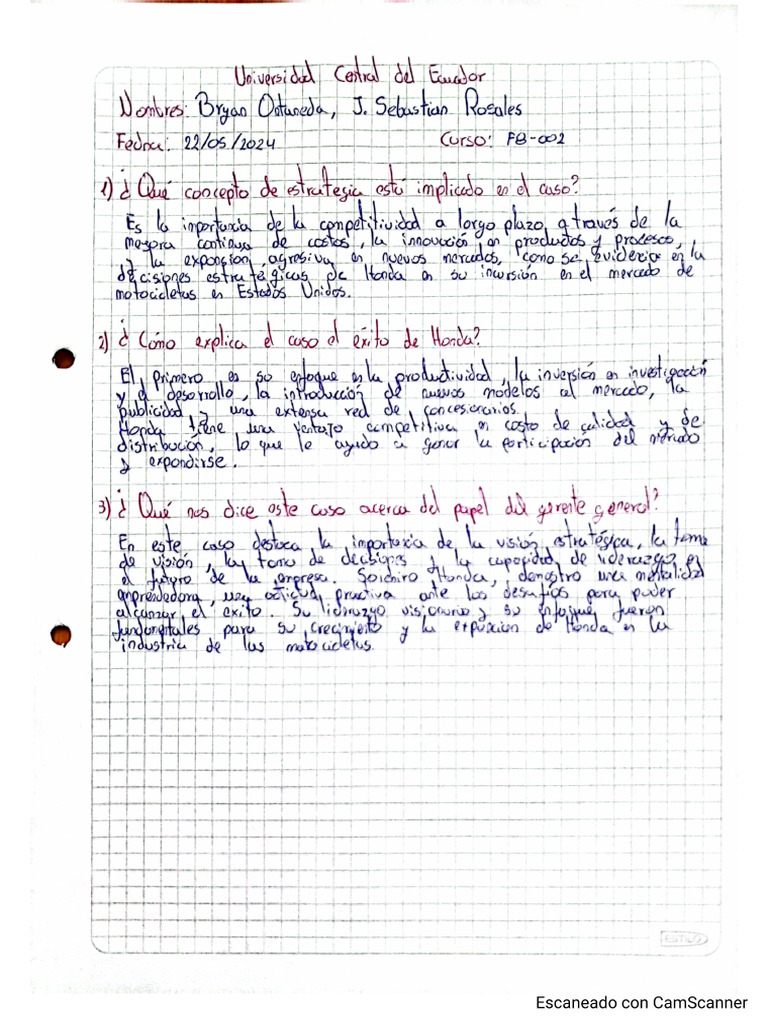 Universidad Central del Ecuador
Nombres: Bryan Ontaneda, J. Sebastian Rosales
Fecha: 22/05/2024 Curso: FB-002
1) ¿Qué concepto de estrategia está implicado en el caso?
Es la importancia de la competitividad a largo plazo, a través de la
mejora continua de costos, la innovación en productos y procesos,
y la expansión agresiva en nuevos mercados, como se evidencia en la
decisiones estratégicas de Honda en su incursión en el mercado de
motocicletas en Estados Unidos.
2) ¿Cómo explica el caso el éxito de Honda?
El primero es su enfoque en la productividad, la inversión en investigación
y el desarrollo, la introducción de nuevos modelos al mercado, la
publicidad y una extensa red de concesionarios.
Honda tiene una ventaja competitiva en costo de calidad y de
distribución, lo que le ayudo a ganar la participación del mercado
y expandirse.
3) ¿Qué nos dice este caso acerca del papel del gerente general?
En este caso destaca la importancia de la visión estratégica, la toma
de visión, la toma de decisiones y la capacidad de liderazgo en
el futuro de la empresa. Soichiro Honda, demostro una mentalidad
emprendedora, una actitud practiva ante los desafíos para poder
alcanzar el exito. Su liderazgo visionario y su enfoque fueron
fundamentales para su crecimiento y la expansion de Honda en la
industria de las motocicletas.
ESTILO
Escaneado con CamScanner